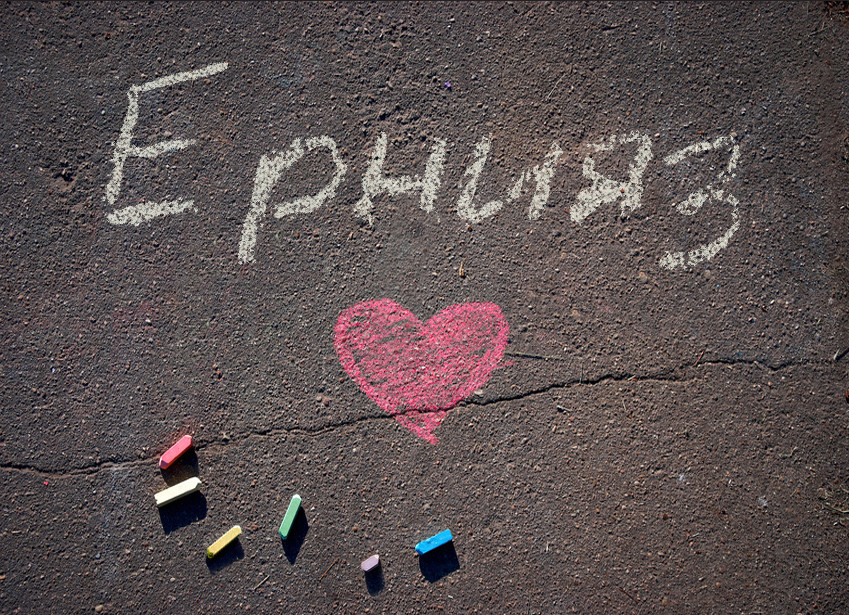 Ернияз